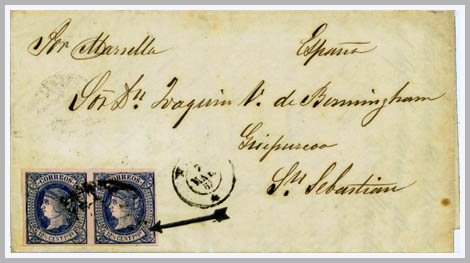 Por Marsella España
Sor Dn Joaquin V. de Bermingham
Guipuzcoa
Sn Sebastian
7
MAY
CORREOS CORREOS